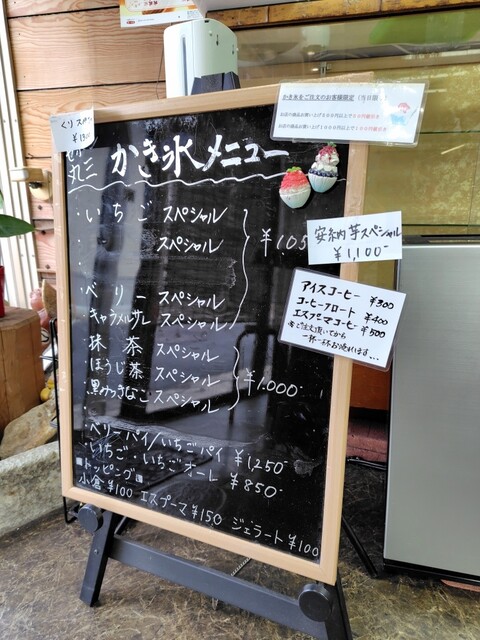 かき氷をご注文のお客様限定
くり スペシャル
¥1300
丸三 かき氷メニュー
・いちご スペシャル
・ スペシャル
¥1,05
安納芋スペシャル
¥1,100-
・
・ベリー スペシャル
・キャラメルサレ スペシャル
アイスコーヒー ¥300
コーヒーフロート ¥400
エスプーマコーヒー ¥500
・抹茶 スペシャル
・ほうじ茶 スペシャル
・黒みつきなこ スペシャル
¥1.000-
・ベリーパイ/いちごパイ ¥1,250-
・いちご・いちごオーレ ¥850-
■トッピング■
小倉 ¥100 エスプーマ ¥150 ジェラート ¥100